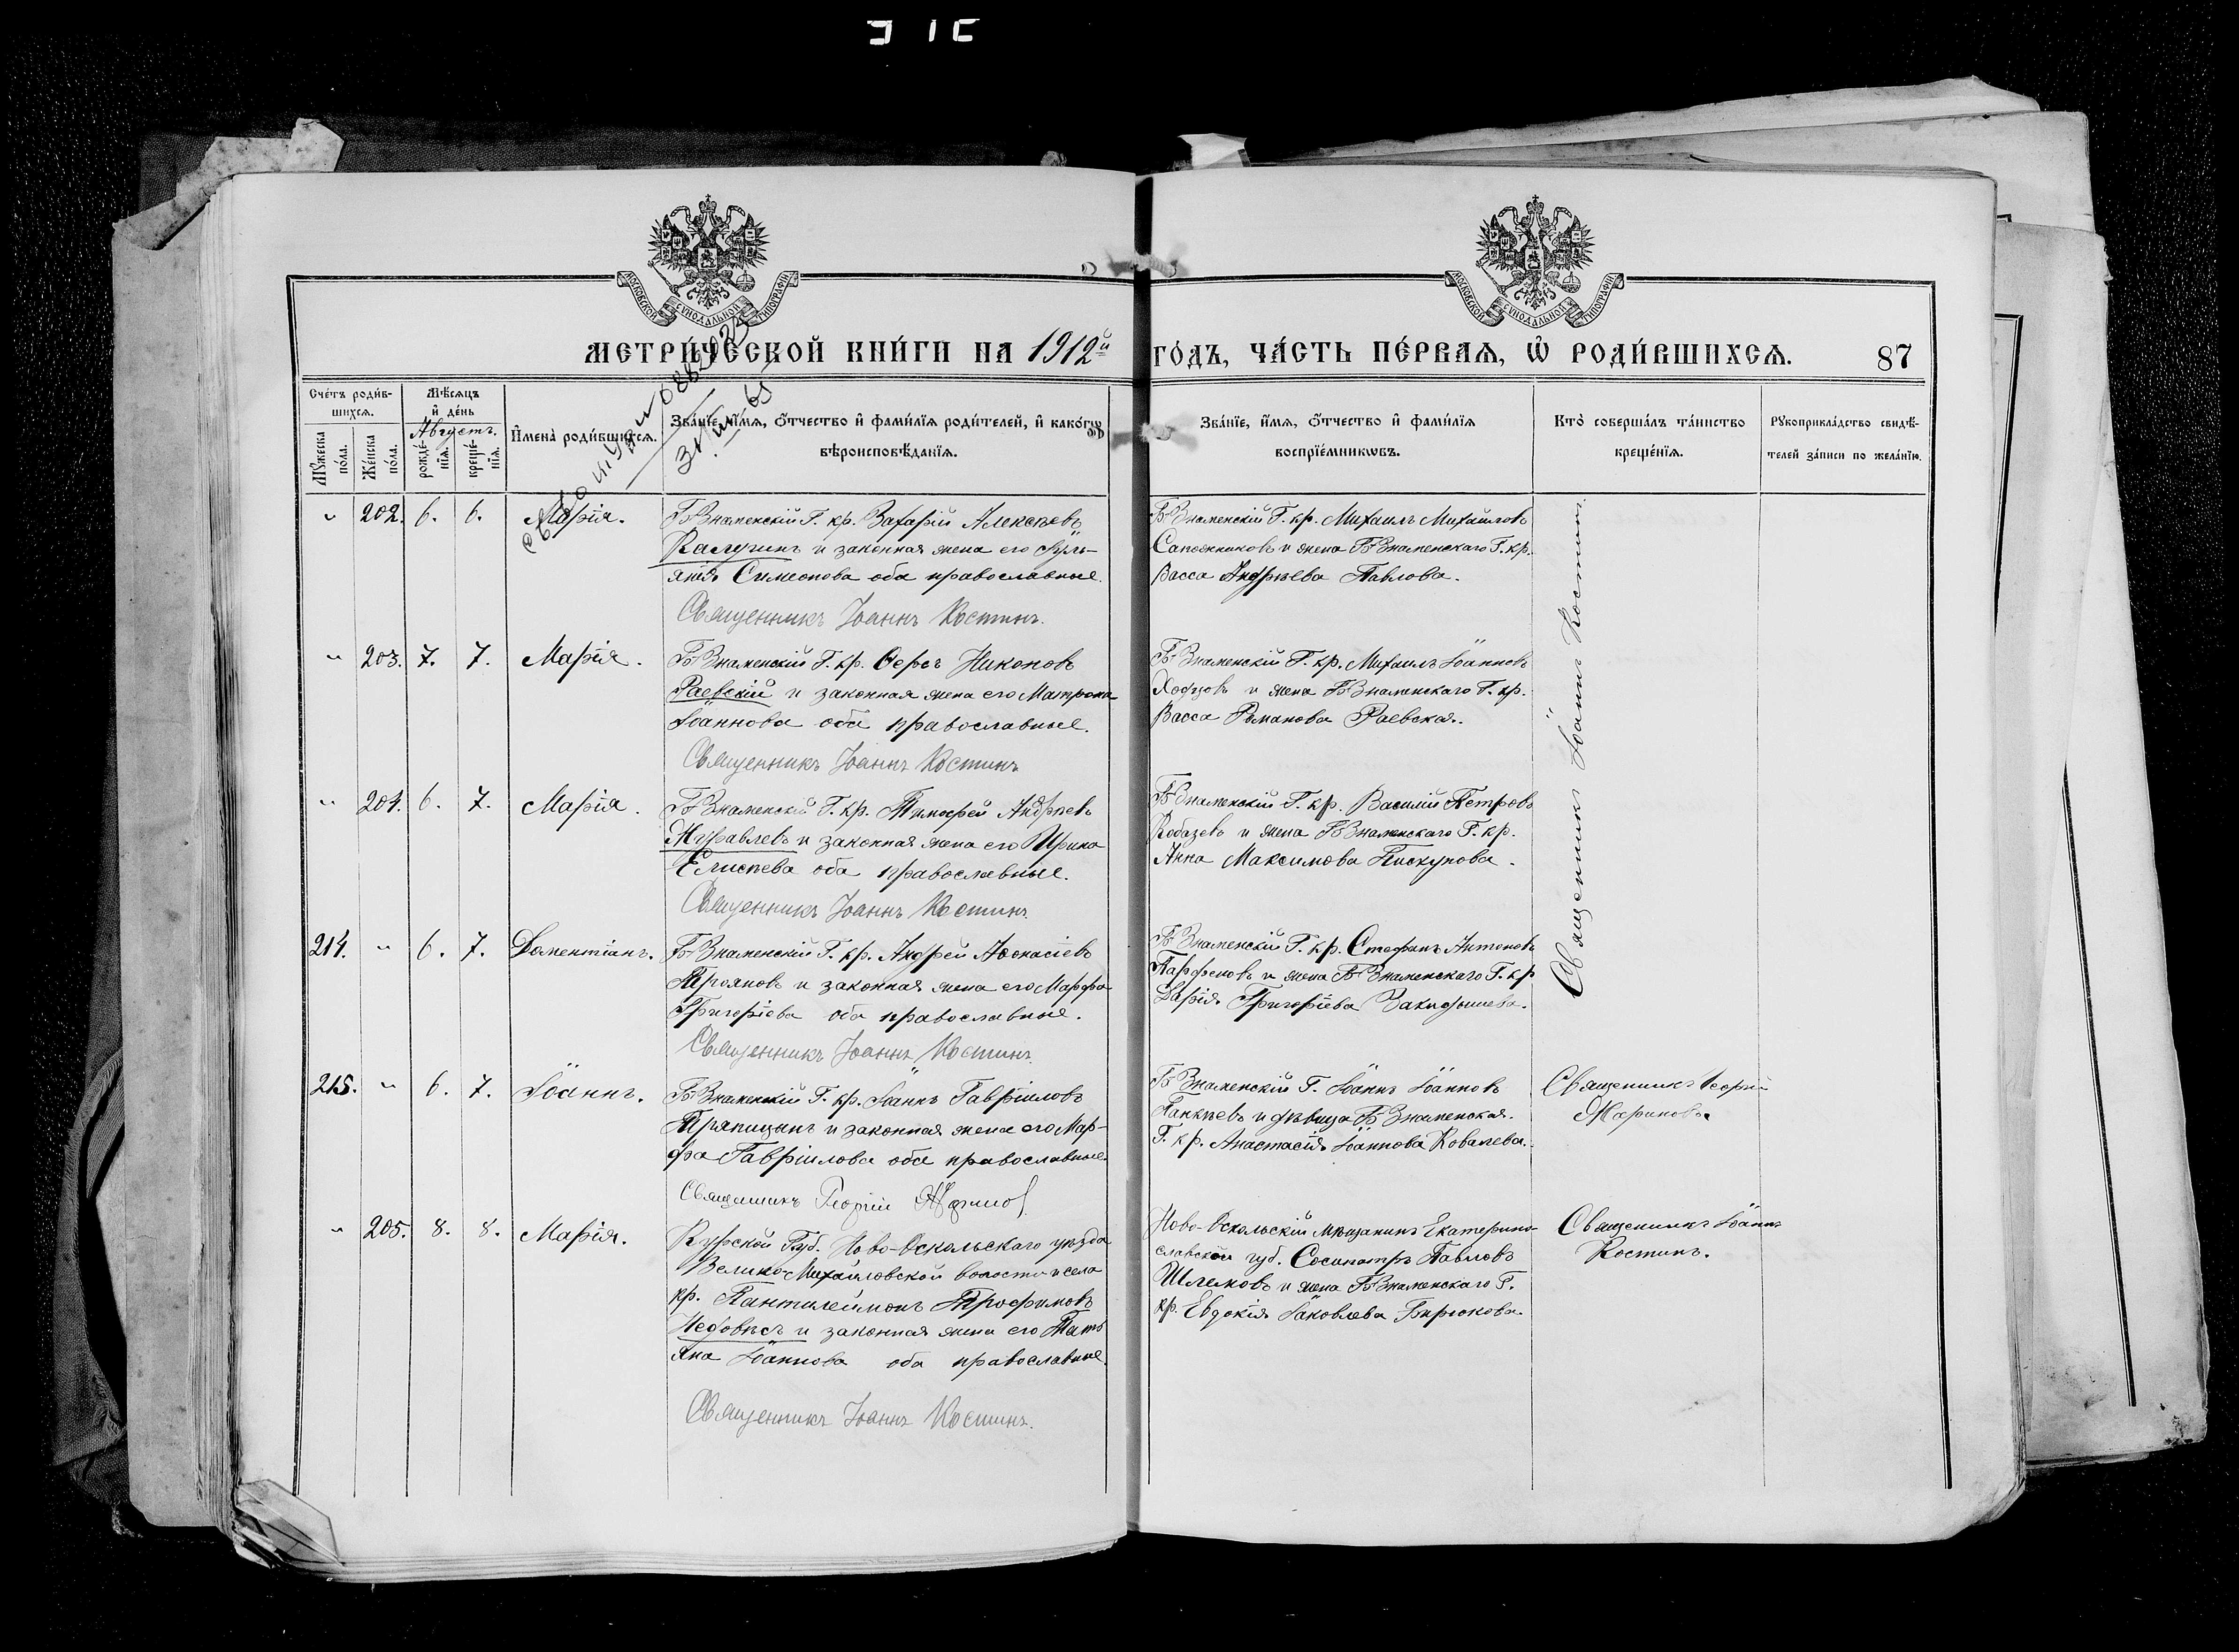 МЕТРИ́ЧЕСКОЙ КНИ́ГИ НА 1912й ГО́ДЪ, ЧА́СТЬ ПЕ́РВАЯ, Ѡ҆ РОДИ́ВШИХСЯ.
87
МОСКОВСКОЙ СѴНОДАЛЬНОЙ ТИПОГРАФІИ
МОСКОВСКОЙ СѴНОДАЛЬНОЙ ТИПОГРАФІИ
Сче́тъ роди́в-
шихся.
Мѣ́сяцъ
и҆ де́нь
Августъ.
Му́жеска по́ла.
Же́нска по́ла.
рожде́-нїя.
креще́-нїя.
И҆мена̀ роди́вшихся.
Зва́нїе, и҆́мя, ѻ҆́тчество и҆ фами́лїя роди́телей, и҆ како́гѡ
вѣроисповѣ́данїя.
Зва́нїе, и҆́мя, ѻ҆́тчество и҆ фами́лїя
воспрїе́мникѡвъ.
Кто̀ соверша́лъ та́инство
креще́нїя.
Рꙋкоприкла́дство свидѣ́-
телей за́писи по жела́нїю.
" 202. 6. 6. Марія.
Б-Знаменскій Г. кр. Захарій Алексѣевъ
Калугинъ и законная жена его Іулі-
янія Симеонова оба православные.
Священникъ Іоаннъ Костинъ.
Б-Знаменскій Г. кр. Михаилъ Михайловъ
Сапожниковъ и жена Б-Знаменскаго Г. кр.
Васса Андрѣева Павлова.
Священникъ Іоаннъ Костинъ
" 203. 7. 7. Марія.
Б-Знаменскій Г. кр. Сергѣ Никоновъ
Раевскій и законная жена его Матрона
Іоаннова оба православные.
Священникъ Іоаннъ Костинъ
Б-Знаменскій Г. кр. Михаилъ Іоанновъ
и жена Б-Знаменскаго Г. кр.
Васса Романова Раевская.
" 204. 6. 7. Марія.
Б-Знаменскій Г. кр. Тимофей Андрѣевъ
Журавлевъ и законная жена его Ирина
Елисѣева оба православные.
Священникъ Іоаннъ Костинъ.
Б-Знаменскій Г. кр. Василій Петровъ
Кобазевъ и жена Б-Знаменскаго Г. кр.
Анна Максимова Пискунова.
214. " 6. 7. Дометіанъ.
Б-Знаменскій Г. кр. Андрей Аѳонасіевъ
Трояновъ и законная жена его Марфа
Григоріева оба православные.
Священникъ Іоаннъ Костинъ.
Б-Знаменскій Г. кр. Стефанъ Антоновъ
Парфеновъ и жена Б-Знаменскаго Г. кр
Дарія Григоріева
215. " 6. 7. Іоаннъ.
Б-Знаменскій Г. кр. Іоаннъ Гавріиловъ
Тряпицынъ и законная жена его Мар-
фа Гавріилова оба православные.
Священникъ Георгій
Б-Знаменскій Г. Іоаннъ Іоанновъ
Панкѣевъ и дѣвица Б-Знаменская
Г. кр. Анастасія Іоаннова Ковалева.
Священникъ Георгій
" 205. 8. 8. Марія.
Курской Губ. Ново-Оскольскаго уѣзда
Велико-Михайловской волости и села
кр. Пантилеймонъ Трофимовъ
и законная жена его Тать
яна Іоаннова оба православные.
Священникъ Іоаннъ Костинъ.
Ново-Оскольскій мѣщанинъ Екатерино-
славской губ. Сосипатръ Павловъ
Шляховъ и жена Б-Знаменскаго Г.
кр. Евдокія Іаковлева Бирюкова.
Священникъ Іоаннъ
Костинъ.